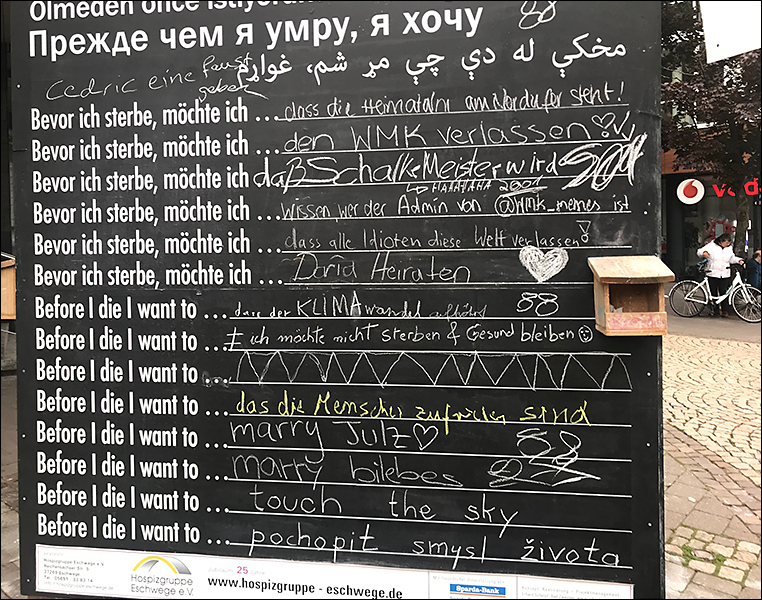 Olmeden önce istiyorum
Прежде чем я умру, я хочу 88
مخکې له دې چې مړ شم، غواړم
Cedric eine faust geben
Bevor ich sterbe, möchte ich ... dass die Heimatalm am Nordufer steht!
Bevor ich sterbe, möchte ich ... den WMK verlassen!
Bevor ich sterbe, möchte ich daß Schalke Meister wird
HAHAHAHA 2001
Bevor ich sterbe, möchte ich ... wissen wer der Admin von @WMK_memes ist
Bevor ich sterbe, möchte ich ... dass alle Idioten diese Welt verlassen!
Bevor ich sterbe, möchte ich ... David Heiraten
Before I die I want to ... dass der KLIMAwandel aufhört 88
Before I die I want to ... I ich möchte nicht sterben & Gesund bleiben
Before I die I want to ...
Before I die I want to ... das die Menschen zufrieden sind
Before I die I want to ... marry Julz 88
Before I die I want to ... marry bilebes
Before I die I want to ... touch the sky
Before I die I want to ... pochopit smysl života
Hospizgruppe Eschwege e.V.
37269 Eschwege
Hospizgruppe
Eschwege e.V.
25
www.hospizgruppe - eschwege.de
Sparda-Bank